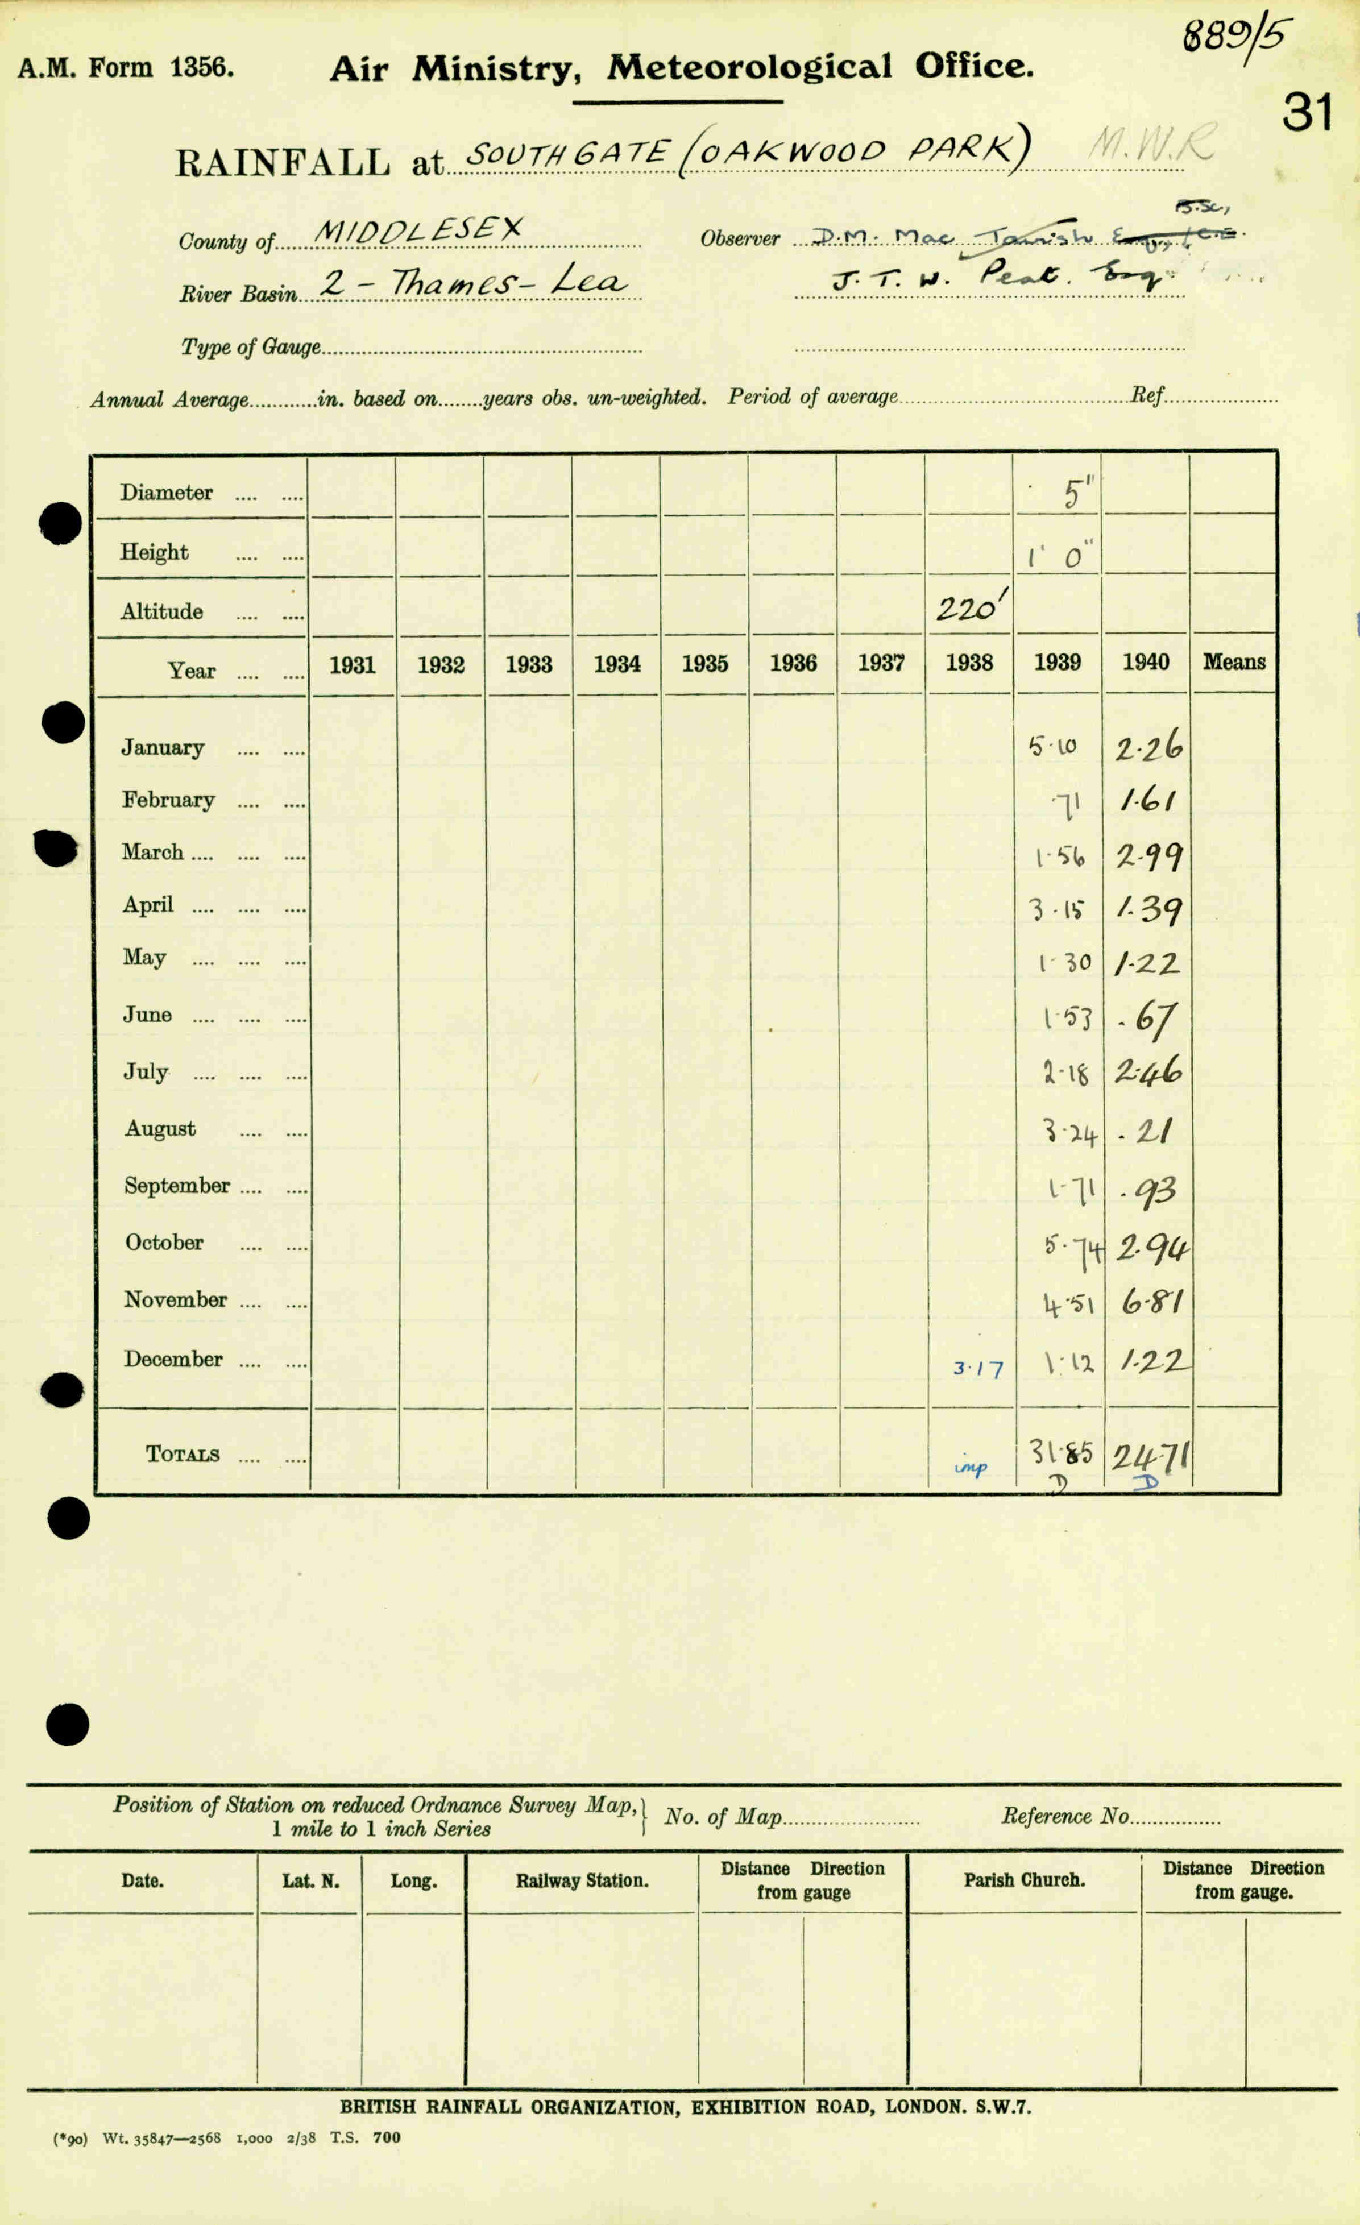 889/5
A.M. Form 1356. Air Ministry, Meteorological Office.
31
RAINFALL at SOUTHGATE (OAKWOOD PARK) M.W.R
B.Sc,
County of MIDDLESEX Observer D.M. Mac Tavish Esq., I.C.E.
River Basin 2 - Thames - Lea J. T. W. Peat. Esq.
Type of Gauge
Annual Average in. based on years obs. un-weighted. Period of average Ref.
Diameter .... .... 5"
Height .... .... 1' 0"
Altitude .... .... 220'
Year .... .... 1931 1932 1933 1934 1935 1936 1937 1938 1939 1940 Means
January .... .... 5.10 2.26
February .... .... .71 1.61
March .... .... .... 1.56 2.99
April .... .... .... 3.15 1.39
May .... .... .... 1.30 1.22
June .... .... .... 1.53 .67
July .... .... .... 2.18 2.46
August .... .... 3.24 .21
September .... .... 1.71 .93
October .... .... 5.74 2.94
November .... .... 4.51 6.81
December .... .... 3.17 1.12 1.22
TOTALS .... .... imp 31.85 24.71
D D
Position of Station on reduced Ordnance Survey Map, } No. of Map Reference No.
1 mile to 1 inch Series
Date. Lat. N. Long. Railway Station. Distance Direction from gauge Parish Church. Distance Direction from gauge.
BRITISH RAINFALL ORGANIZATION, EXHIBITION ROAD, LONDON. S.W.7.
(*90) Wt. 35847—2568 1,000 2/38 T.S. 700